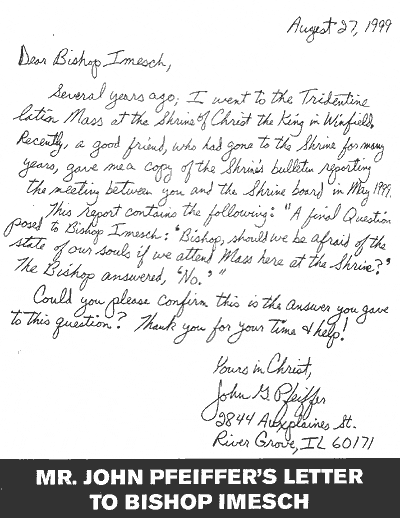 August 27, 1999
Dear Bishop Imesch,
Several years ago, I went to the Tridentine
Latin Mass at the Shrine of Christ the King in Winfield.
Recently, a good friend, who had gone to the Shrine for many
years, gave me a copy of the Shrine's bulletin reporting
the meeting between you and the Shrine board in May 1999.
This report contains the following: "A final Question
posed to Bishop Imesch: 'Bishop, should we be afraid of the
state of our souls if we attend Mass here at the Shrine?'
The Bishop answered, 'No.'"
Could you please confirm this is the answer you gave
to this question? Thank you for your time & help!
Yours in Christ,
John G. Pfeiffer
2844 St.
River Grove, IL 60171
MR. JOHN PFEIFFER'S LETTER
TO BISHOP IMESCH